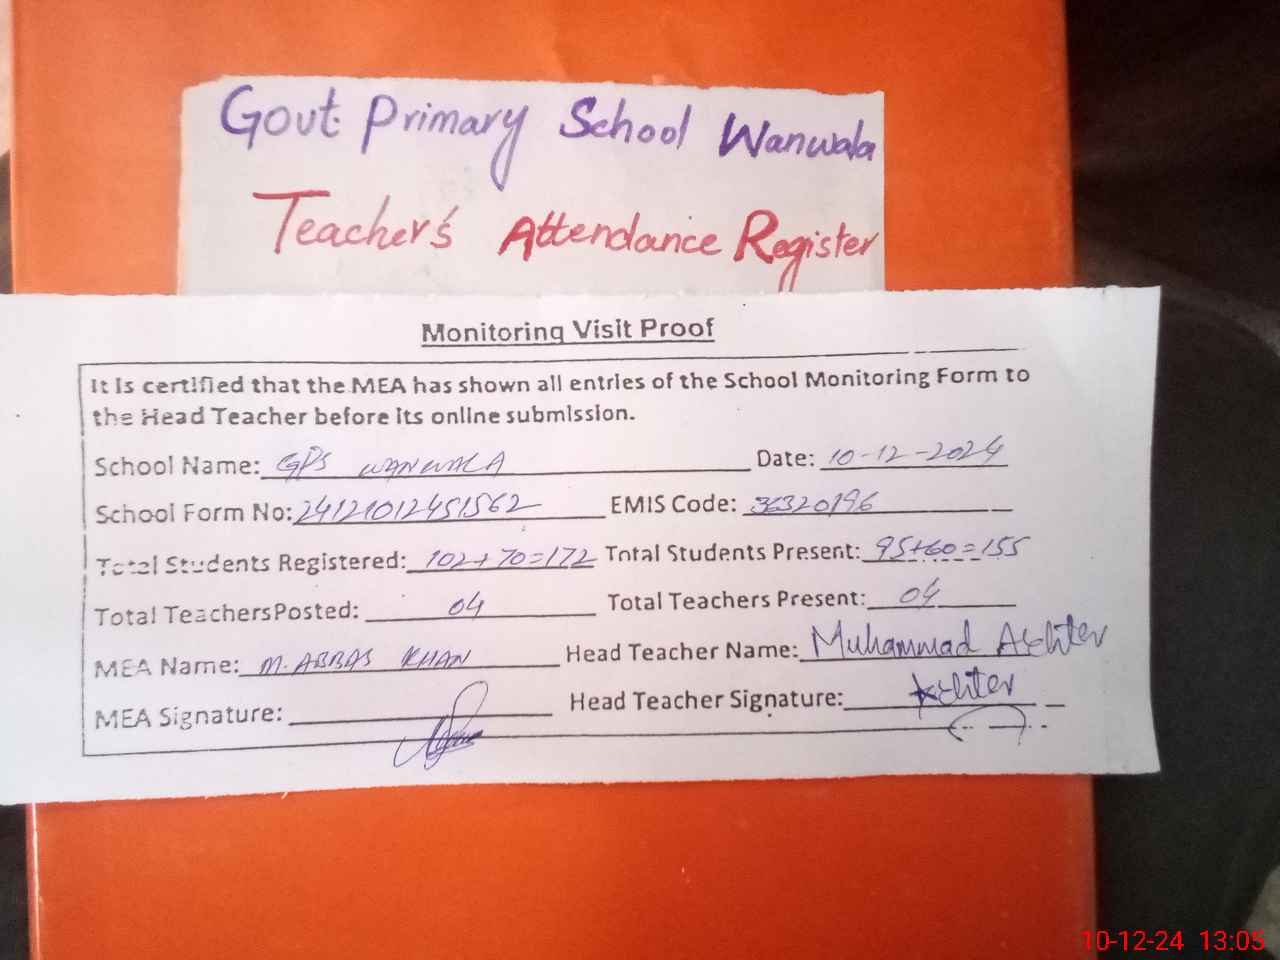 Govt. Primary School Wanwala
Teacher's Attendance Register
Monitoring Visit Proof
It is certified that the MEA has shown all entries of the School Monitoring Form to
the Head Teacher before its online submission.
School Name: GPS WANWALA Date: 10-12-2024
School Form No: 24121012451562 EMIS Code: 36320196
Total Students Registered: 102+70=172 Total Students Present: 95+60=155
Total Teachers Posted: 04 Total Teachers Present: 04
MEA Name: M. ABBAS KHAN Head Teacher Name: Muhammad Akhter
MEA Signature: Head Teacher Signature: Akhter
10-12-24 13:05